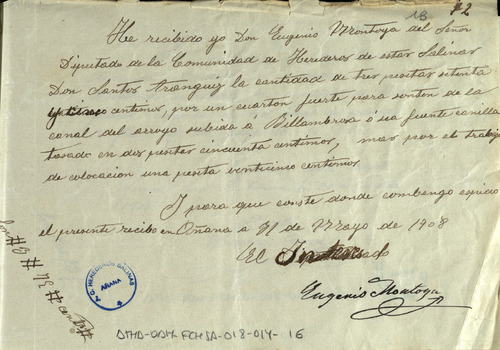 13 72
He recibido yo Don Eugenio Montoya del Señor
Diputado de la Comunidad de Herederos de estas Salinas
Don Santos Aranguiz la cantidad de tres pesetas setenta
y cinco centimos, por un cuarton fuerte para sosten de la
canal del arroyo subida á Villambrosa ó sea fuente canilla
tasado en dos pesetas cincuenta centimos, mas por el trabajo
de colocacion una peseta venticinco centimos
I para que conste donde combenga espido
el presente recibo en Añana a 31 de Mayo de 1908
El Interesado
Eugenio Montoya
C. HEREDEROS SALINAS
AÑANA
018-014-16